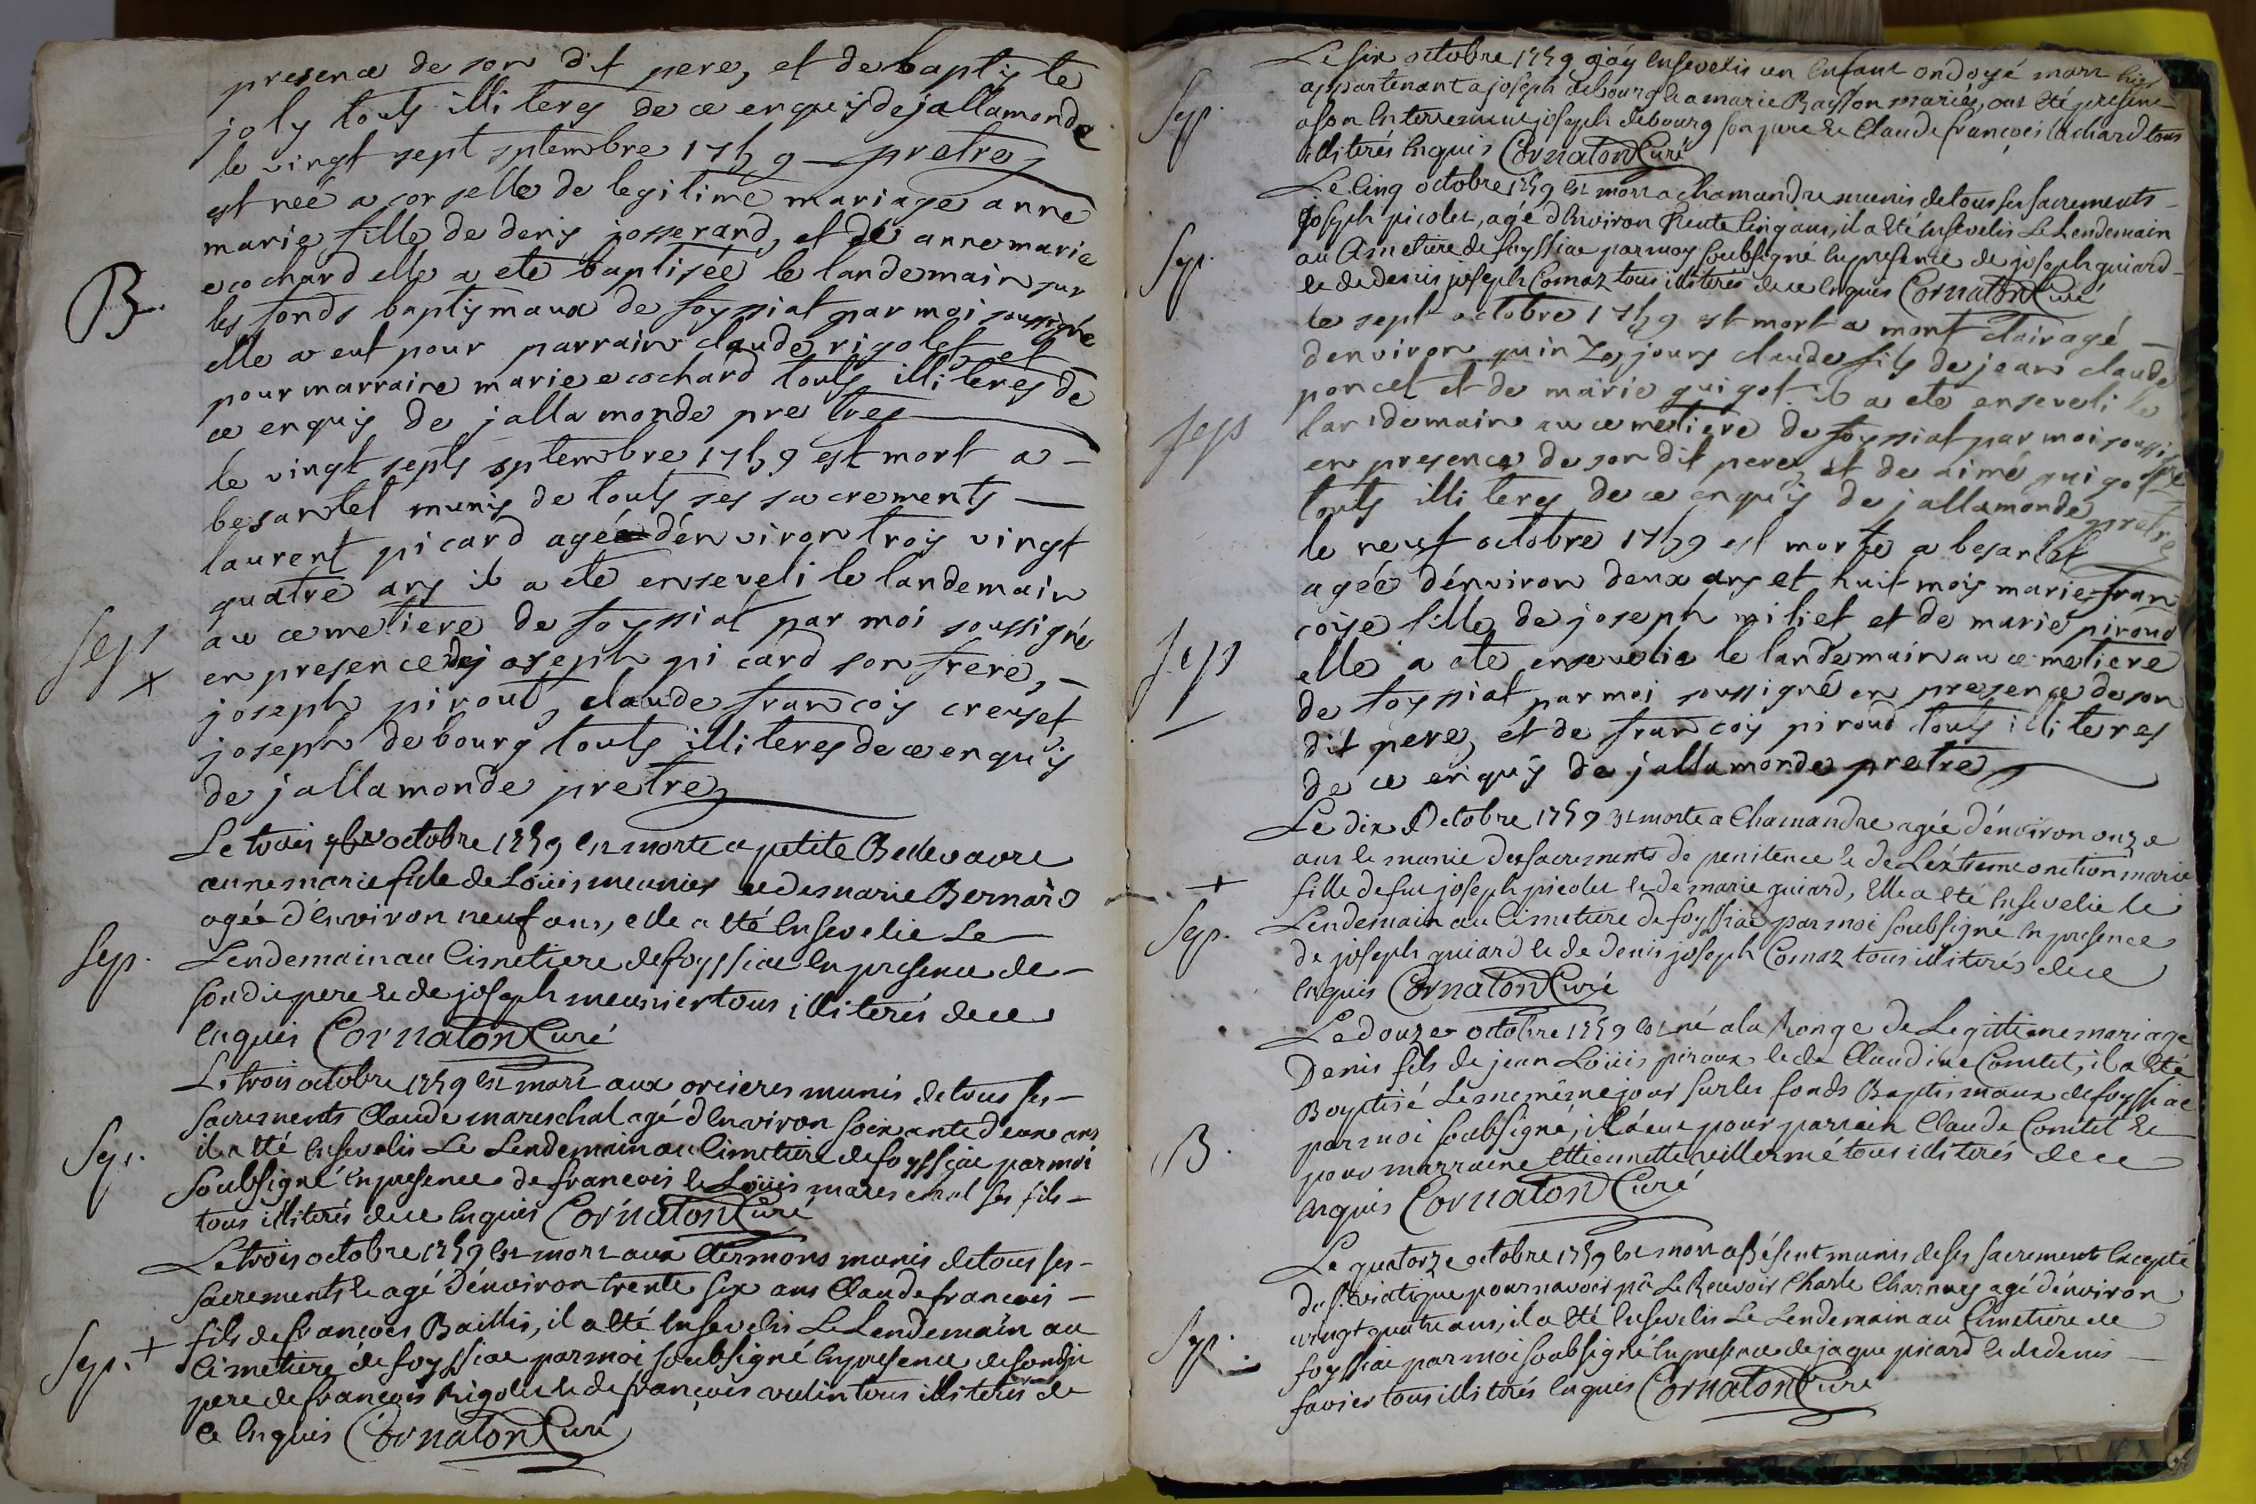 presence de son dit pere, et de baptiste
joly touts illiteres de ce enquis de jallamonde
le vingt sept septembre 1759 pretre
est neé a corselle de legitime mariage anne
marie fille de denis josserand, et de anne marie
ecochard elle a eté baptisée le landemain sur
B.
les fonds baptismaux de foyssiat par moi soussigné
elle a eut pour parrain claude rigolet et
pour marraine marie ecochard touts illiteres de
ce enquis de jallamonde pretre
le vingt sept septembre 1759 est mort a
besantet munis de touts ses sacrements
laurent picard agé d'environ trois vingt
quatre ans il a eté enseveli le landemain
Sep
au cemetiere de foyssiat par moi soussigné
en presence de joseph picard son frere,
joseph piroud, claude francois creuset
joseph debourg touts illiteres de ce enquis
de jallamonde pretre
Le trois octobre 1759 est morte a petite Bellevavre
anne marie fille de Loüis meunier et de marie Bernard
agée d'Environ neuf ans, elle a Eté Ensevelie Le
Sep.
Lendemain au Cimetiere de foyssiat En presence de
son dit pere et de joseph meunier tous illiterés de ce
Enquis Cornaton Curé
Le trois octobre 1759 Est mort aux orcieres munis de tous ses
sacrements Claude mareschal agé d'Environ soixante deux ans
Sep.
il a Eté Ensevelis Le Lendemain au Cimetiere de foyssiat par moi
soubsigné En presence de francois et Loüis mareschal ses fils
tous illiterés de ce Enquis Cornaton Curé
Le trois octobre 1759 Est mort aux Clermons munis de tous ses
sacrements et agé d'environ trente six ans Claude francois
Sep. +
fils de françois Baillis, il a Eté Ensevelis Le Lendemain au
Cimetiere de foyssiat par moi soubsigné En presence de son dit
pere de françois Rigolet et de françois vulin tous illiterés de
ce Enquis Cornaton Curé
Le six octobre 1759 j'ay Ensevelis un Enfant ondoyé mort
Sep.
appartenant a joseph debourg et a marie Basson mariés, ont Eté presens
a son Enterrement joseph debourg son pere et Claude françois cochard tous
illiterés Enquis Cornaton Curé
Le Cinq octobre 1759 Est mort a chamandre munis de tous ses sacrements
joseph picolet, agé d'Environ trente Cinq ans, il a Eté Ensevelis Le Lendemain
Sep.
au Cimetiere de foyssiat par moy soubsigné En presence de joseph guiard
et de denis joseph Comaz tous illiterés de ce Enquis Cornaton Curé
le sept octobre 1759 est mort a mont clair agé
d'environ quinze jours claude fils de jean claude
poncet et de marie guigot il a eté enseveli le
Seps
landemain au cemetiere de foyssiat par moi soussigné
en presence de son dit pere, et de aimé guigot
touts illiteres de ce enquis de jallamonde pretre
le neuf octobre 1759 est morte a besantet
agée d'environ deux ans et huit mois marie fran
coise fille de joseph miliet et de marie piroud
Seps
elle a eté ensevelie le landemain au cemetiere
de foyssiat par moi soussigné en presence de son
dit pere, et de francois piroud touts illiteres
de ce enquis de jallamonde pretre
Le dix Octobre 1759 Est morte a Chamandre agée d'environ onze
ans et munie des sacrements de penitence et de L'extreme onction marie
+
fille de feu joseph picolet et de marie guiard, Elle a Eté Ensevelie le
Sep.
Lendemain au Cimetiere de foyssiat par moi soubsigné En presence
de joseph guiard et de denis joseph Comaz tous illiterés de ce
Enquis Cornaton Curé
Le douze octobre 1759 Est né a la Ronge de Legitime mariage
Denis fils de jean Loüis piroux et de Claudine Comtet, il a Eté
Baptisé Le même jour sur les fonds Baptismaux de foyssiat
B.
par moi soubsigné, il a eu pour parrain Claude Comtet Et
pour marraine Ettiennette villermé tous illiterés de ce
Enquis Cornaton Curé
Le quatorze octobre 1759 Est mort a munis de ses sacrements Excepté
du S. viatique pour n'avoir pû Le Recevoir Charle Charnay agé d'environ
Sep.
vingt quatre ans, il a Eté Ensevelis Le Lendemain au Cimetiere de
foyssiat par moi soubsigné En presence de jaque picard et de denis
favier tous illiterés Enquis Cornaton Curé